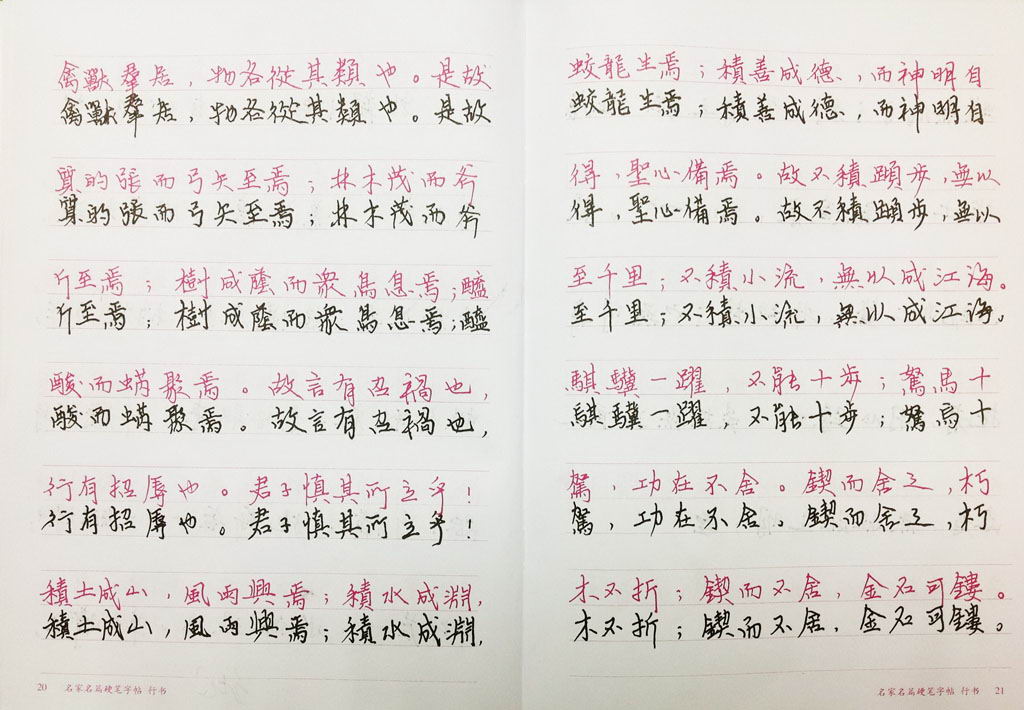 禽獸羣居，物各從其類也。是故
禽獸羣居，物各從其類也。是故
質的張而弓矢至焉；林木茂而斧
質的張而弓矢至焉；林木茂而斧
斤至焉；樹成蔭而眾鳥息焉；醯
斤至焉；樹成蔭而眾鳥息焉；醯
酸而蜹聚焉。故言有召禍也，
酸而蜹聚焉。故言有召禍也，
行有招辱也。君子慎其所立乎！
行有招辱也。君子慎其所立乎！
積土成山，風雨興焉；積水成淵，
積土成山，風雨興焉；積水成淵，
20 名家名篇硬笔字帖 行书
蛟龍生焉；積善成德，而神明自
蛟龍生焉；積善成德，而神明自
得，聖心備焉。故不積蹞步，無以
得，聖心備焉。故不積蹞步，無以
至千里；不積小流，無以成江海。
至千里；不積小流，無以成江海。
騏驥一躍，不能十步；駑馬十
騏驥一躍，不能十步；駑馬十
駕，功在不舍。鍥而舍之，朽
駕，功在不舍。鍥而舍之，朽
木不折；鍥而不舍，金石可鏤。
木不折；鍥而不舍，金石可鏤。
名家名篇硬笔字帖 行书 21